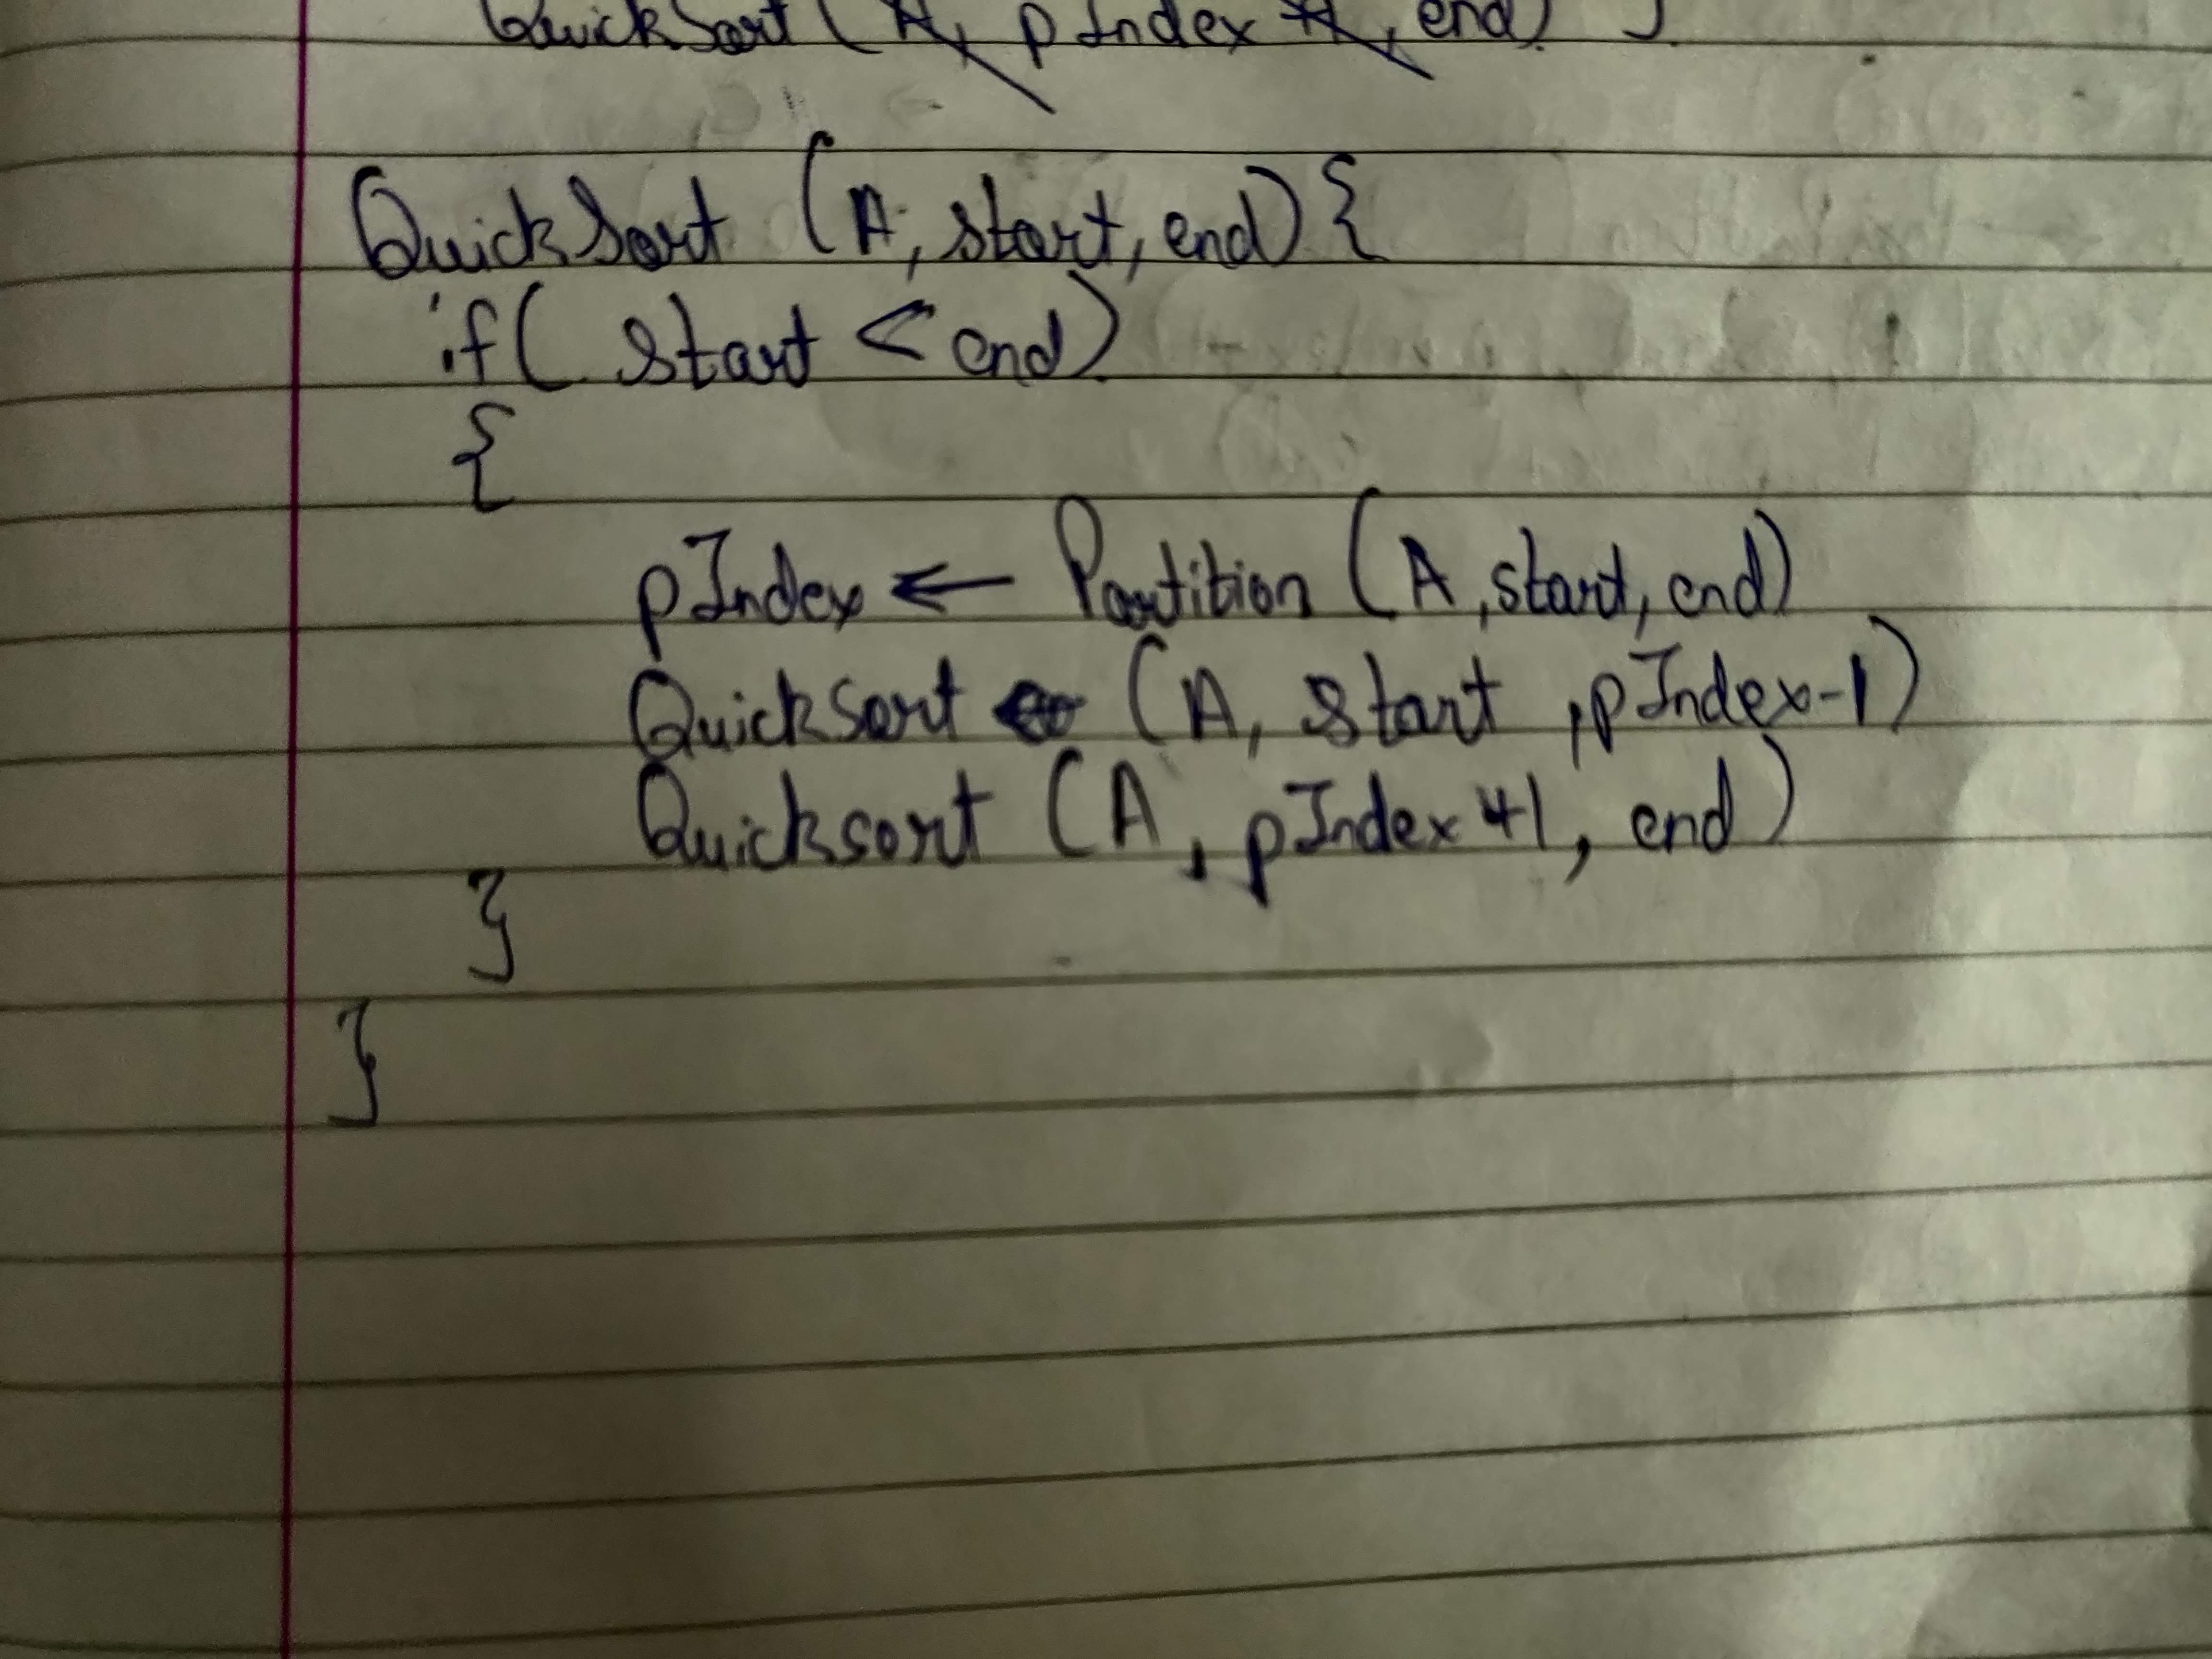 QuickSort (A, pIndex , end)
QuickSort (A, start, end) {
if( start < end)
{
pIndex ← Partition (A, start, end)
QuickSort (A, start , pIndex-1)
Quicksort (A , pIndex+1, end)
}
}